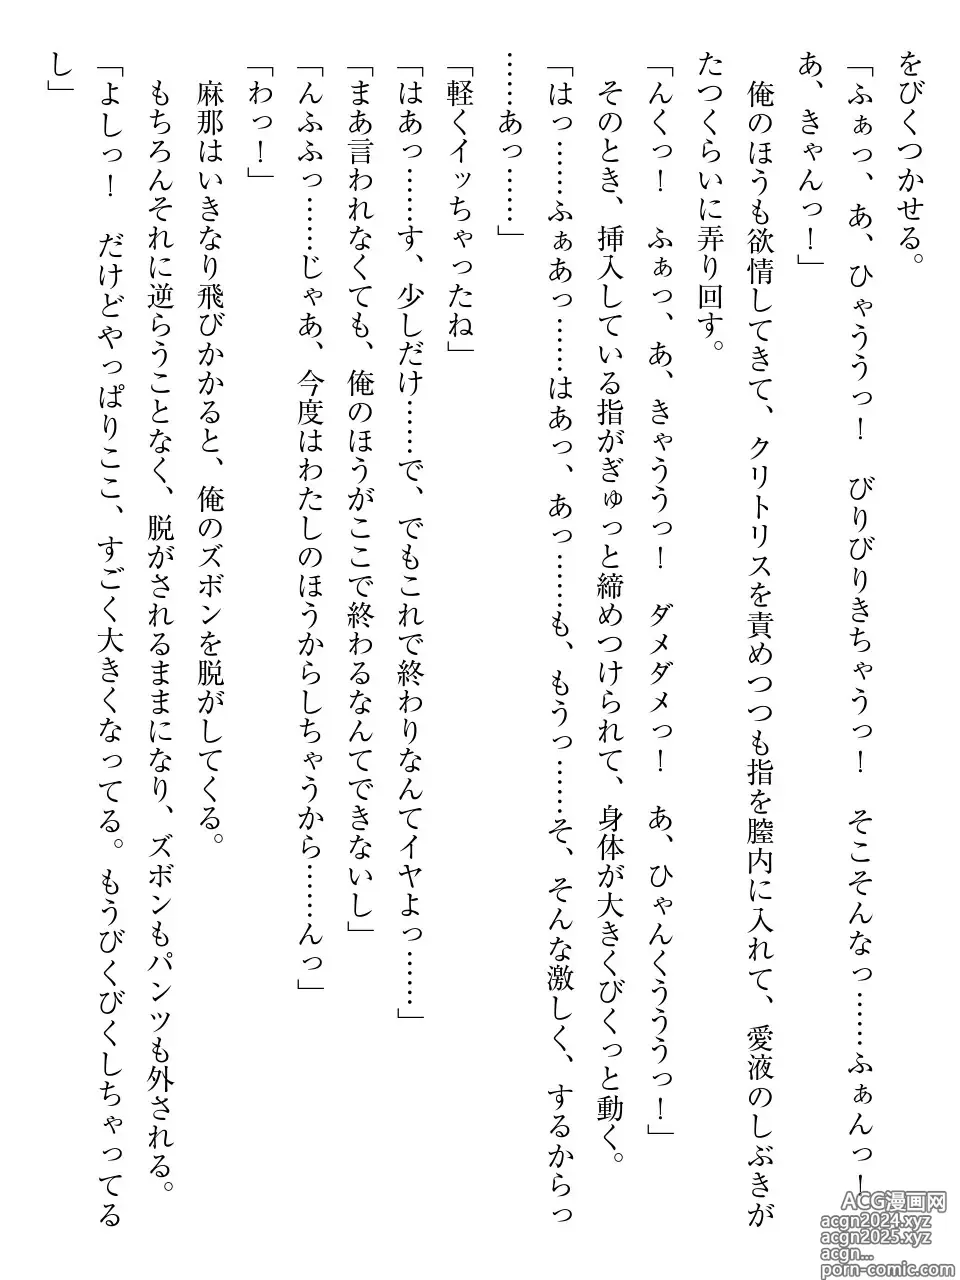 をびくつかせる。
「ふぁっ、あ、ひゃううっ！　びりびりきちゃうっ！　そこそんなっ……ふぁんっ！
あ、きゃんっ！」
　俺のほうも欲情してきて、クリトリスを責めつつも指を膣内に入れて、愛液のしぶきが
たつくらいに弄り回す。
「んくっ！　ふぁっ、あ、きゃううっ！　ダメダメっ！　あ、ひゃんくうううっ！」
　そのとき、挿入している指がぎゅっと締めつけられて、身体が大きくびくっと動く。
「はっ……ふぁあっ……はあっ、あっ……も、もうっ……そ、そんな激しく、するからっ
……あっ……」
「軽くイッちゃったね」
「はあっ……す、少しだけ……で、でもこれで終わりなんてイヤよっ……」
「まあ言われなくても、俺のほうがここで終わるなんてできないし」
「んふふっ……じゃあ、今度はわたしのほうからしちゃうから……んっ」
「わっ！」
　麻那はいきなり飛びかかると、俺のズボンを脱がしてくる。
　もちろんそれに逆らうことなく、脱がされるままになり、ズボンもパンツも外される。
「よしっ！　だけどやっぱりここ、すごく大きくなってる。もうびくびくしちゃってる
し」
ACG漫画网
acgn2024.xyz
acgn2025.xyz
acgn...
porn-comic.com